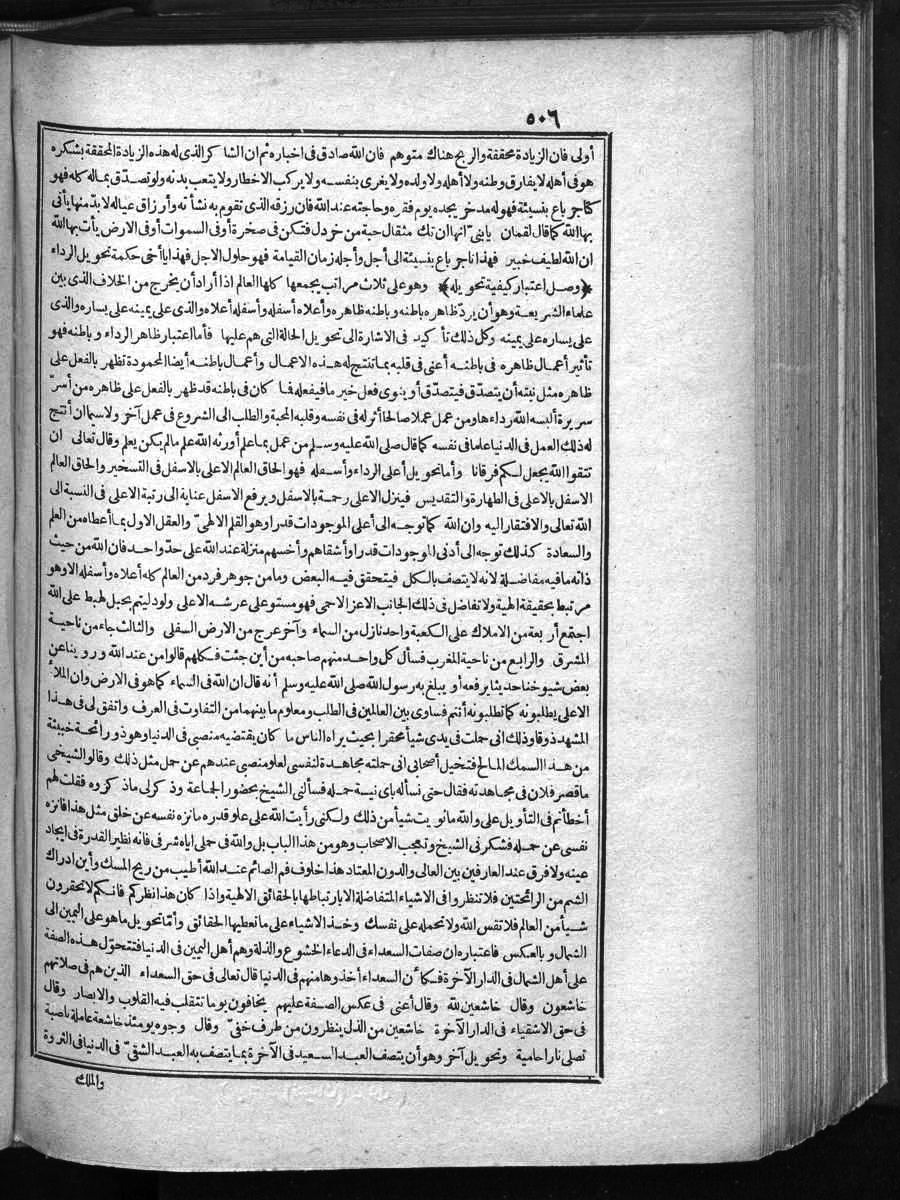 ٥٠٦
أولى فان الزيادة محققة والربح هناك متوهم فان الله صادق فى اخباره ثم ان الشاكر الذى له هذه الزيادة المحققة بشكره
هو فى أهله لا يفارق وطنه ولا أهله ولا ولده ولا يغرى بنفسه ولا يركب الاخطار ولا يتعب بدنه ولو تصدّق بماله كله فهو
كتاجر باع بنسيئة فهو له مدخر يجده يوم فقره وحاجته عند الله فان رزقه الذى تقوم به نشأته وأرزاق عياله لا بدّ منها يأتى
بها الله كما قال لقمان يابنىّ انها ان تك مثقال حبة من خردل فتكن فى صخرة أو فى السموات أو فى الارض يأت بها الله
ان الله لطيف خبير فهذا تاجر باع بنسيئة الى أجل وأجله زمان القيامة فهو حلول الاجل فهذا يا أخى حكمة تحويل الرداء
﴿وصل اعتبار كيفية تحويله﴾ وهو على ثلاث مراتب يجمعها كلها العالم اذا أراد أن يخرج من الخلاف الذى بين
علماء الشريعة وهو أن يردّ ظاهره باطنه وباطنه ظاهره وأعلاه أسفله وأسفله أعلاه والذى على يمينه على يساره والذى
على يساره على يمينه وكل ذلك تأكيد فى الاشارة الى تحويل الحالة التى هم عليها فأما اعتبار ظاهر الرداء وباطنه فهو
تأثير أعمال ظاهره فى باطنه أعنى فى قلبه بما تنتج له هذه الاعمال وأعمال باطنه أيضا المحمودة تظهر بالفعل على
ظاهره مثل نيته أن يتصدّق فيتصدّق أو ينوى فعل خير ما فيفعله فما كان فى باطنه قد ظهر بالفعل على ظاهره من أسرّ
سريرة ألبسه الله رداءها ومن عمل عملا صالحا أثر له فى نفسه وقلبه المحبة والطلب الى الشروع فى عمل آخر ولا سيما ان أنتج
له ذلك العمل فى الدنيا علما فى نفسه كما قال صلى الله عليه وسلم من عمل بما علم أورثه الله علم ما لم يكن يعلم وقال تعالى ان
تتقوا الله يجعل لكم فرقانا وأما تحويل أعلى الرداء وأسفله فهو الحاق العالم الاعلى بالاسفل فى التسخير والحاق العالم
الاسفل بالاعلى فى الطهارة والتقديس فينزل الاعلى رحمة بالاسفل ويرفع الاسفل عناية الى رتبة الاعلى فى النسبة الى
الله تعالى والافتقار اليه وان الله كما توجه الى أعلى الموجودات قدرا وهو القلم الالهىّ والعقل الاول بما أعطاه من العلم
والسعادة كذلك توجه الى أدنى الموجودات قدرا وأشقاهم وأخسهم منزلة عند الله على حدّ واحد فان الله من حيث
ذاته ما فيه مفاضلة لانه لا يتصف بالكل فيتحقق فيه البعض وما من جوهر فرد من العالم كله أعلاه وأسفله الا وهو
مرتبط بحقيقة الهية ولا تفاضل فى ذلك الجانب الاعز الاحمى فهو مستو على عرشه الاعلى ولو دليتم بحبل لهبط على الله
اجتمع أربعة من الاملاك على الكعبة واحد نازل من السماء وآخر عرج من الارض السفلى والثالث جاء من ناحية
المشرق والرابع من ناحية المغرب فسأل كل واحد منهم صاحبه من أين جئت فكلهم قالوا من عند الله وروينا عن
بعض شيوخنا حديثا يرفعه أو يبلغ به رسول الله صلى الله عليه وسلم أنه قال ان الله فى السماء كما هو فى الارض وان الملأ
الاعلى يطلبونه كما تطلبونه أنتم فساوى بين العالمين فى الطلب ومعلوم ما بينهما من التفاوت فى العرف واتفق لى فى هذا
المشهد ذوقا وذلك انى حملت فى يدى شيأ محقرا بحيث يراه الناس ما كان يقتضيه منصبى فى الدنيا وهو ذو رائحة خبيثة
من هذا السمك المالح فتخيل أصحابى انى حملته مجاهدة لنفسى لعلو منصبى عندهم عن حمل مثل ذلك وقالوا لشيخى
ما قصر فلان فى مجاهدته فقال حتى نسأله باى نية حمله فسألنى الشيخ بحضور الجماعة وذكر لى ما ذكروه فقلت لهم
أخطأتم فى التأويل علىّ والله ما نويت شيأ من ذلك ولكنى رأيت الله على علو قدره ما نزه نفسه عن خلق مثل هذا فانزه
نفسى عن حمله فشكرنى الشيخ وتعجب الاصحاب وهو من هذا الباب بل والله فى حملى اياه شرفى فانه نظير القدرة فى ايجاد
عينه ولا فرق عند العارفين بين العالى والدون المعتاد هذا خلوف فم الصائم عند الله أطيب من ريح المسك وأين ادراك
الشم من الرائحتين فلا تنظروا فى الاشياء المتفاضلة الا بارتباطها بالحقائق الالهية واذا كان هذا نظركم فانكم لا تحقرون
شيأ من العالم فلا تقس الله ولا تحمله على نفسك وخذ الاشياء على ما تعطيها الحقائق وأمّا تحويل ما هو على اليمين الى
الشمال وبالعكس فاعتباره ان صفات السعداء فى الدعاء الخشوع والذلة وهم أهل اليمين فى الدنيا فتتحوّل هذه الصفة
على أهل الشمال فى الدار الآخرة فكأن السعداء أخذوها منهم فى الدنيا قال تعالى فى حق السعداء الذين هم فى صلاتهم
خاشعون وقال خاشعين لله وقال أعنى فى عكس الصفة عليهم يخافون يوما تتقلب فيه القلوب والابصار وقال
فى حق الاشقياء فى الدار الآخرة خاشعين من الذل ينظرون من طرف خفىّ وقال وجوه يومئذ خاشعة عاملة ناصبة
تصلى نارا حامية وتحويل آخر وهو أن يتصف العبد السعيد فى الآخرة بما يتصف به العبد الشقىّ فى الدنيا فى الثروة
والملك